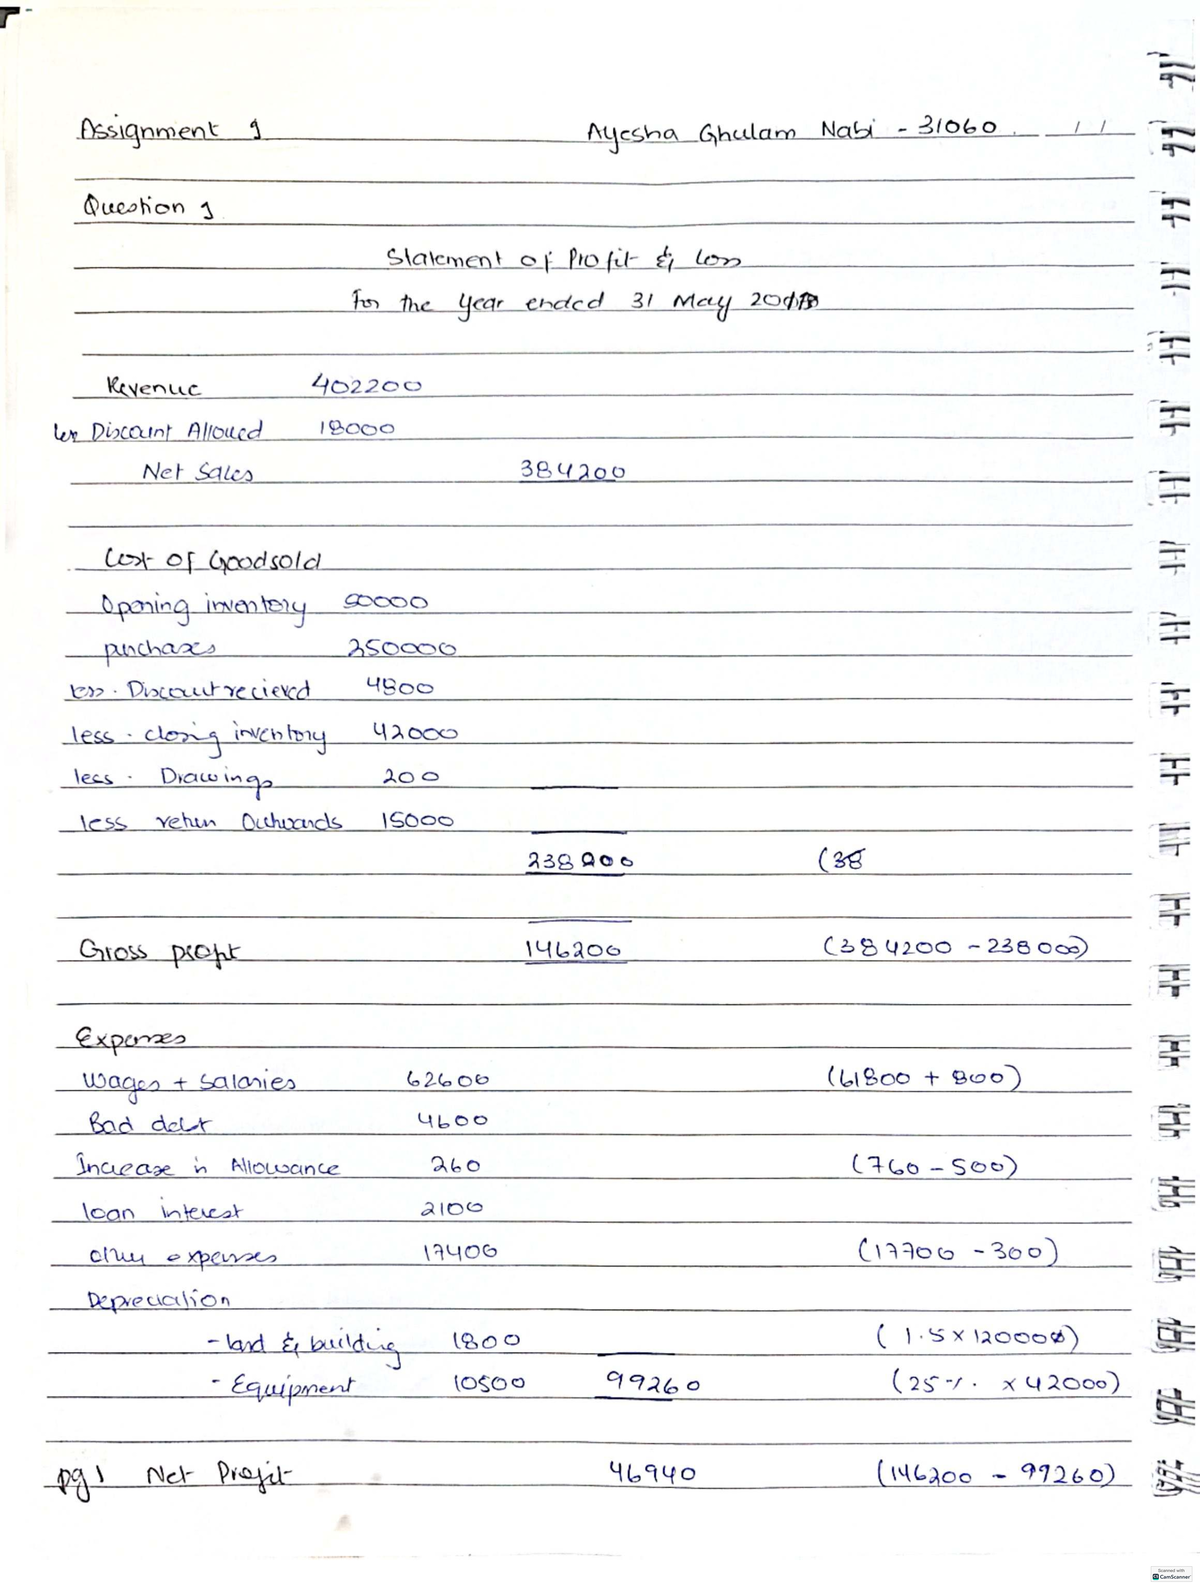 Assignment 1 Ayesha Ghulam Nabi - 31060 / /
Question 1
Statement of Profit & Loss
For the year ended 31 May
Revenue 402200
less Discount Allowed 18000
Net Sales 384200
Cost of Goodsold
Opening inventory 50000
purchases 250000
less. Discount recieved 4800
less. closing inventory 42000
less. Drawings 200
less return Outwards 15000
238 000 (38
Gross profit 146200 (384200 - 238000)
Expenses
Wages + Salaries 62600 (61800 + 800)
Bad debt 4600
Increase in Allowance 260 (760 - 500)
loan interest 2100
other expenses 17400 (17700 - 300)
Depreciation
- land & building 1800 (1.5 x 120000)
- Equipment 10500 99260 (25 %. x 42000)
pg 1 Net Profit 46940 (146200 - 99260)
Scanned with
CamScanner